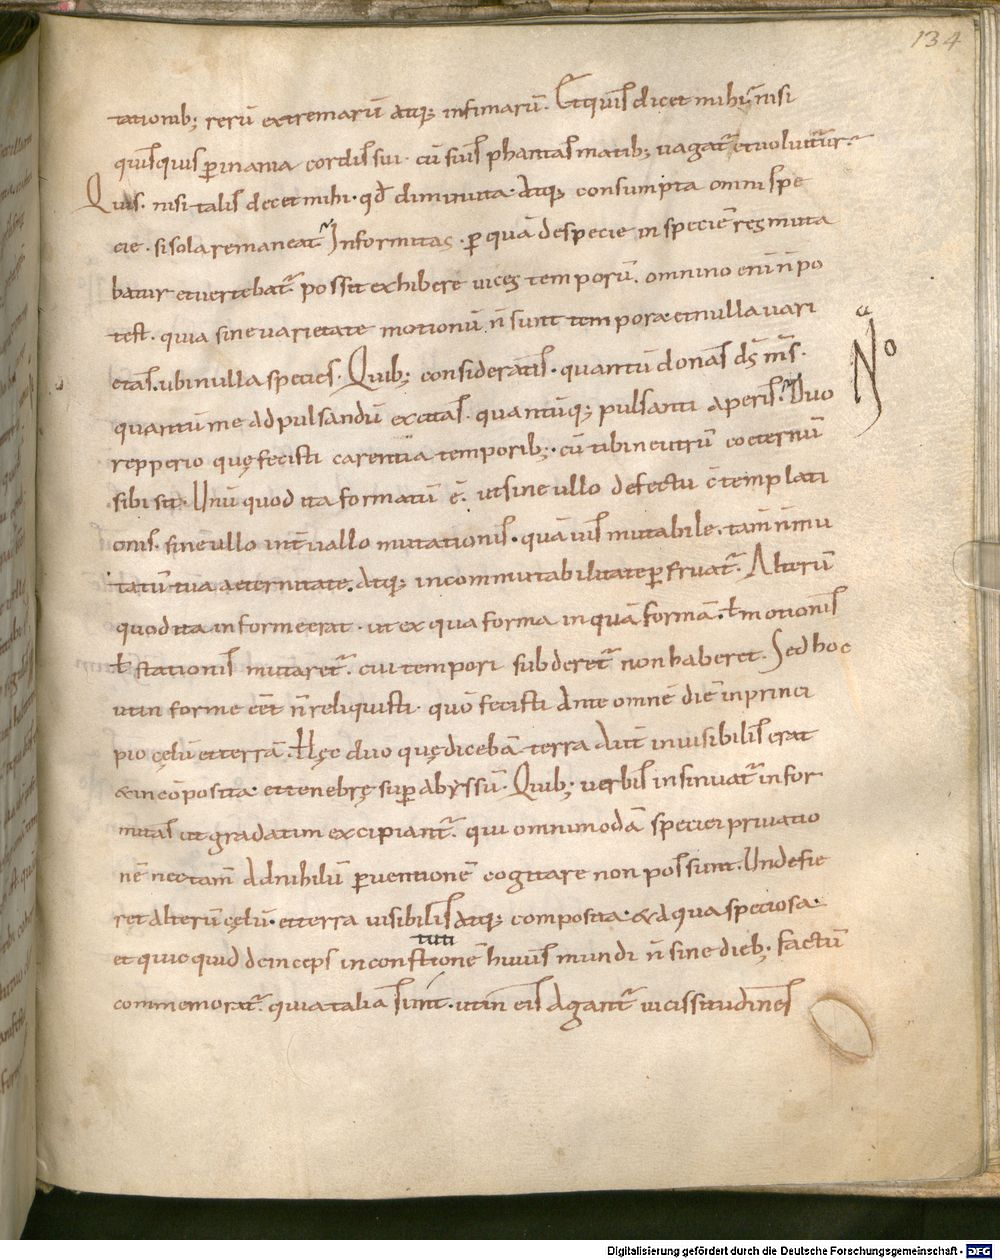 134
tationib; rerū extremarū atq; infimarū. Et quis dicet mihi nisi
quisquis ꝑ inania cordis sui. cū suis phantasmatib; uagat᷑ et uoluitur.
Quis. nisi talis dicet mihi. qđ diminuta atq; consumpta omni spe
cie. si sola remaneat᷑ Informitas. ꝑ quā de specie in speciē res muta
batur et uertebat᷑ posset exhibere uices temporū. omnino eni n̄ po
test. quia sine uarietate motionū n̄ sunt tempora et nulla uari
etas. ubi nulla species. Quib; consideratis. quantū donas ds̄ ms̄.
quantū me ad pulsandū excitas. quantūq; pulsanti aperis. Duo
repperio quę fecisti carentia temporib;. cū tibi neutrū coeternū
sibi sit. Unū quod ita formatū ē. ut sine ullo defectu c̄templati
onis. sine ullo int̄uallo mutationis. quāuis mutabile. tam̄ n̄ mu
tatū tua aeternitate. atq; incommutabilitate ꝑfruat᷑. Alterū
quod ita informe erat. ut ex qua forma in quā formā. ł motionis
ł stationis mutaret᷑. cui tempori subderet᷑ non haberet. Sed hoc
ut in forme eēt n̄ reliquisti. quō fecisti ante omnē diē in princi
pio cęlū et terrā. Hęc duo quę dicebā terra aut̄ inuisibilis erat
& incōposita. et tenebrę suꝑ abyssū. Quib; uerbis insinuat᷑ infor
mitas ut gradatim excipiant᷑. qui omnimodā speciei priuatio
nē nec tam̄ ad nihilū ꝑuentionē cogitare non possunt. Unde fie
ret alterū cęlū. et terra uisibilis atq; composita. & aqua speciosa.
tuti
et quicquid deinceps in constionē huius mundi n̄ sine dieb; factū
commemorat᷑. quia talia sunt. ut in eis agant᷑ uicissitudines
Digitalisierung gefördert durch die Deutsche Forschungsgemeinschaft - DFG